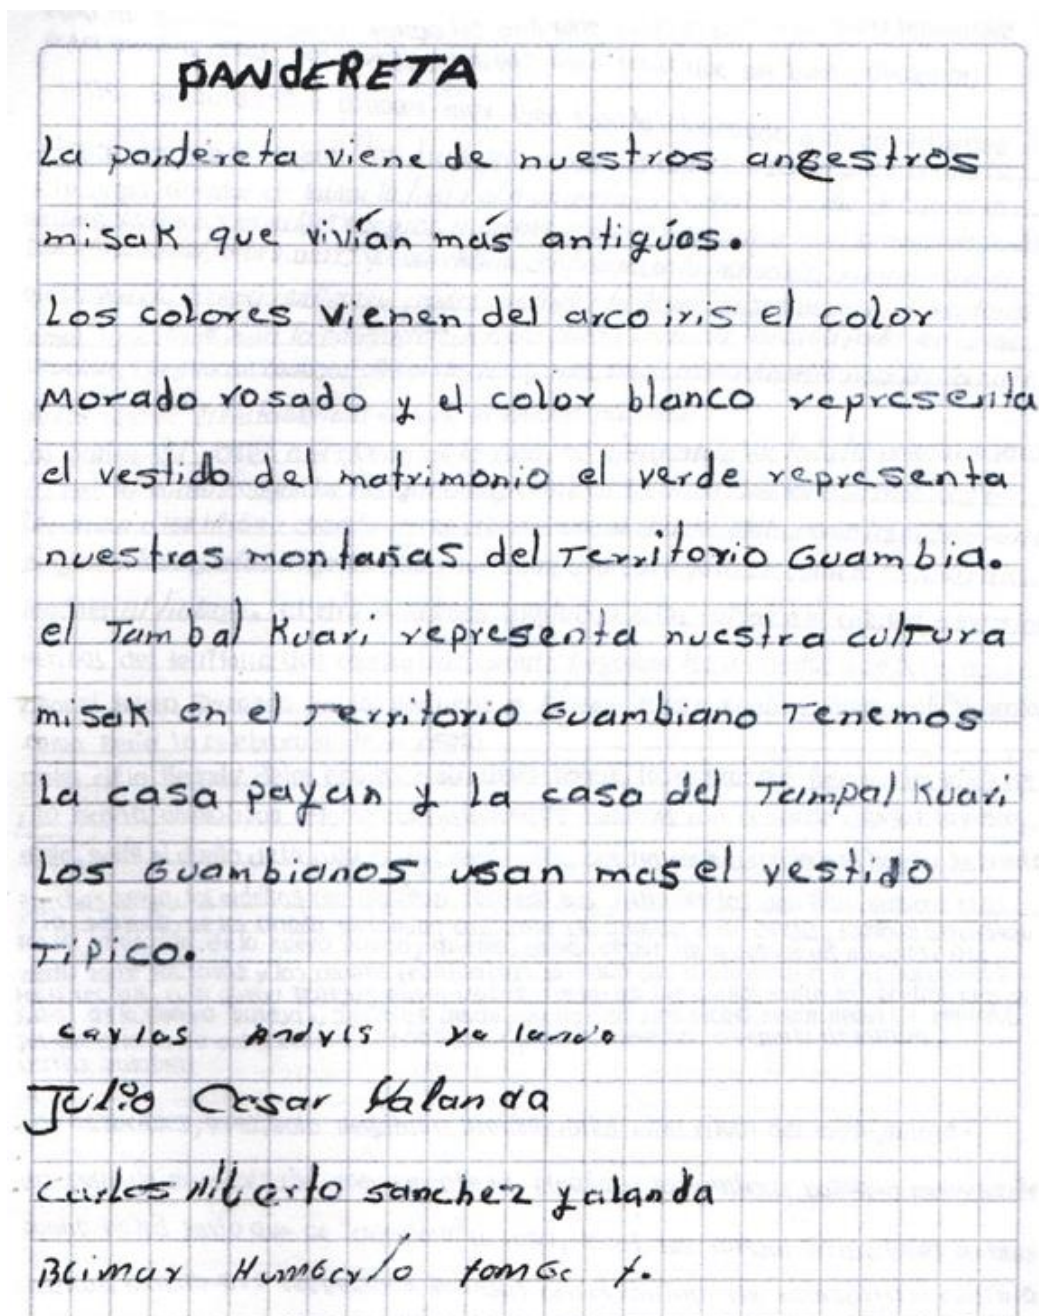 PANdERETA
La pandereta viene de nuestros ansestros
misak que vivían más antigúos.
Los colores vienen del arco iris el color
Morado rosado y el color blanco representa
el vestido del matrimonio el verde representa
nuestras montañas del Territorio Guambia.
el Tambal Kuari representa nuestra cultura
misak en el Territorio Guambiano Tenemos
La casa payan y la casa del Tampal Kuari
Los Guambianos usan mas el vestido
Tipico.
carlos Andres yalanda
Julio Cesar Yalanda
Carlos Alberto sanchez yalanda
Beimar Humberto tombe t.